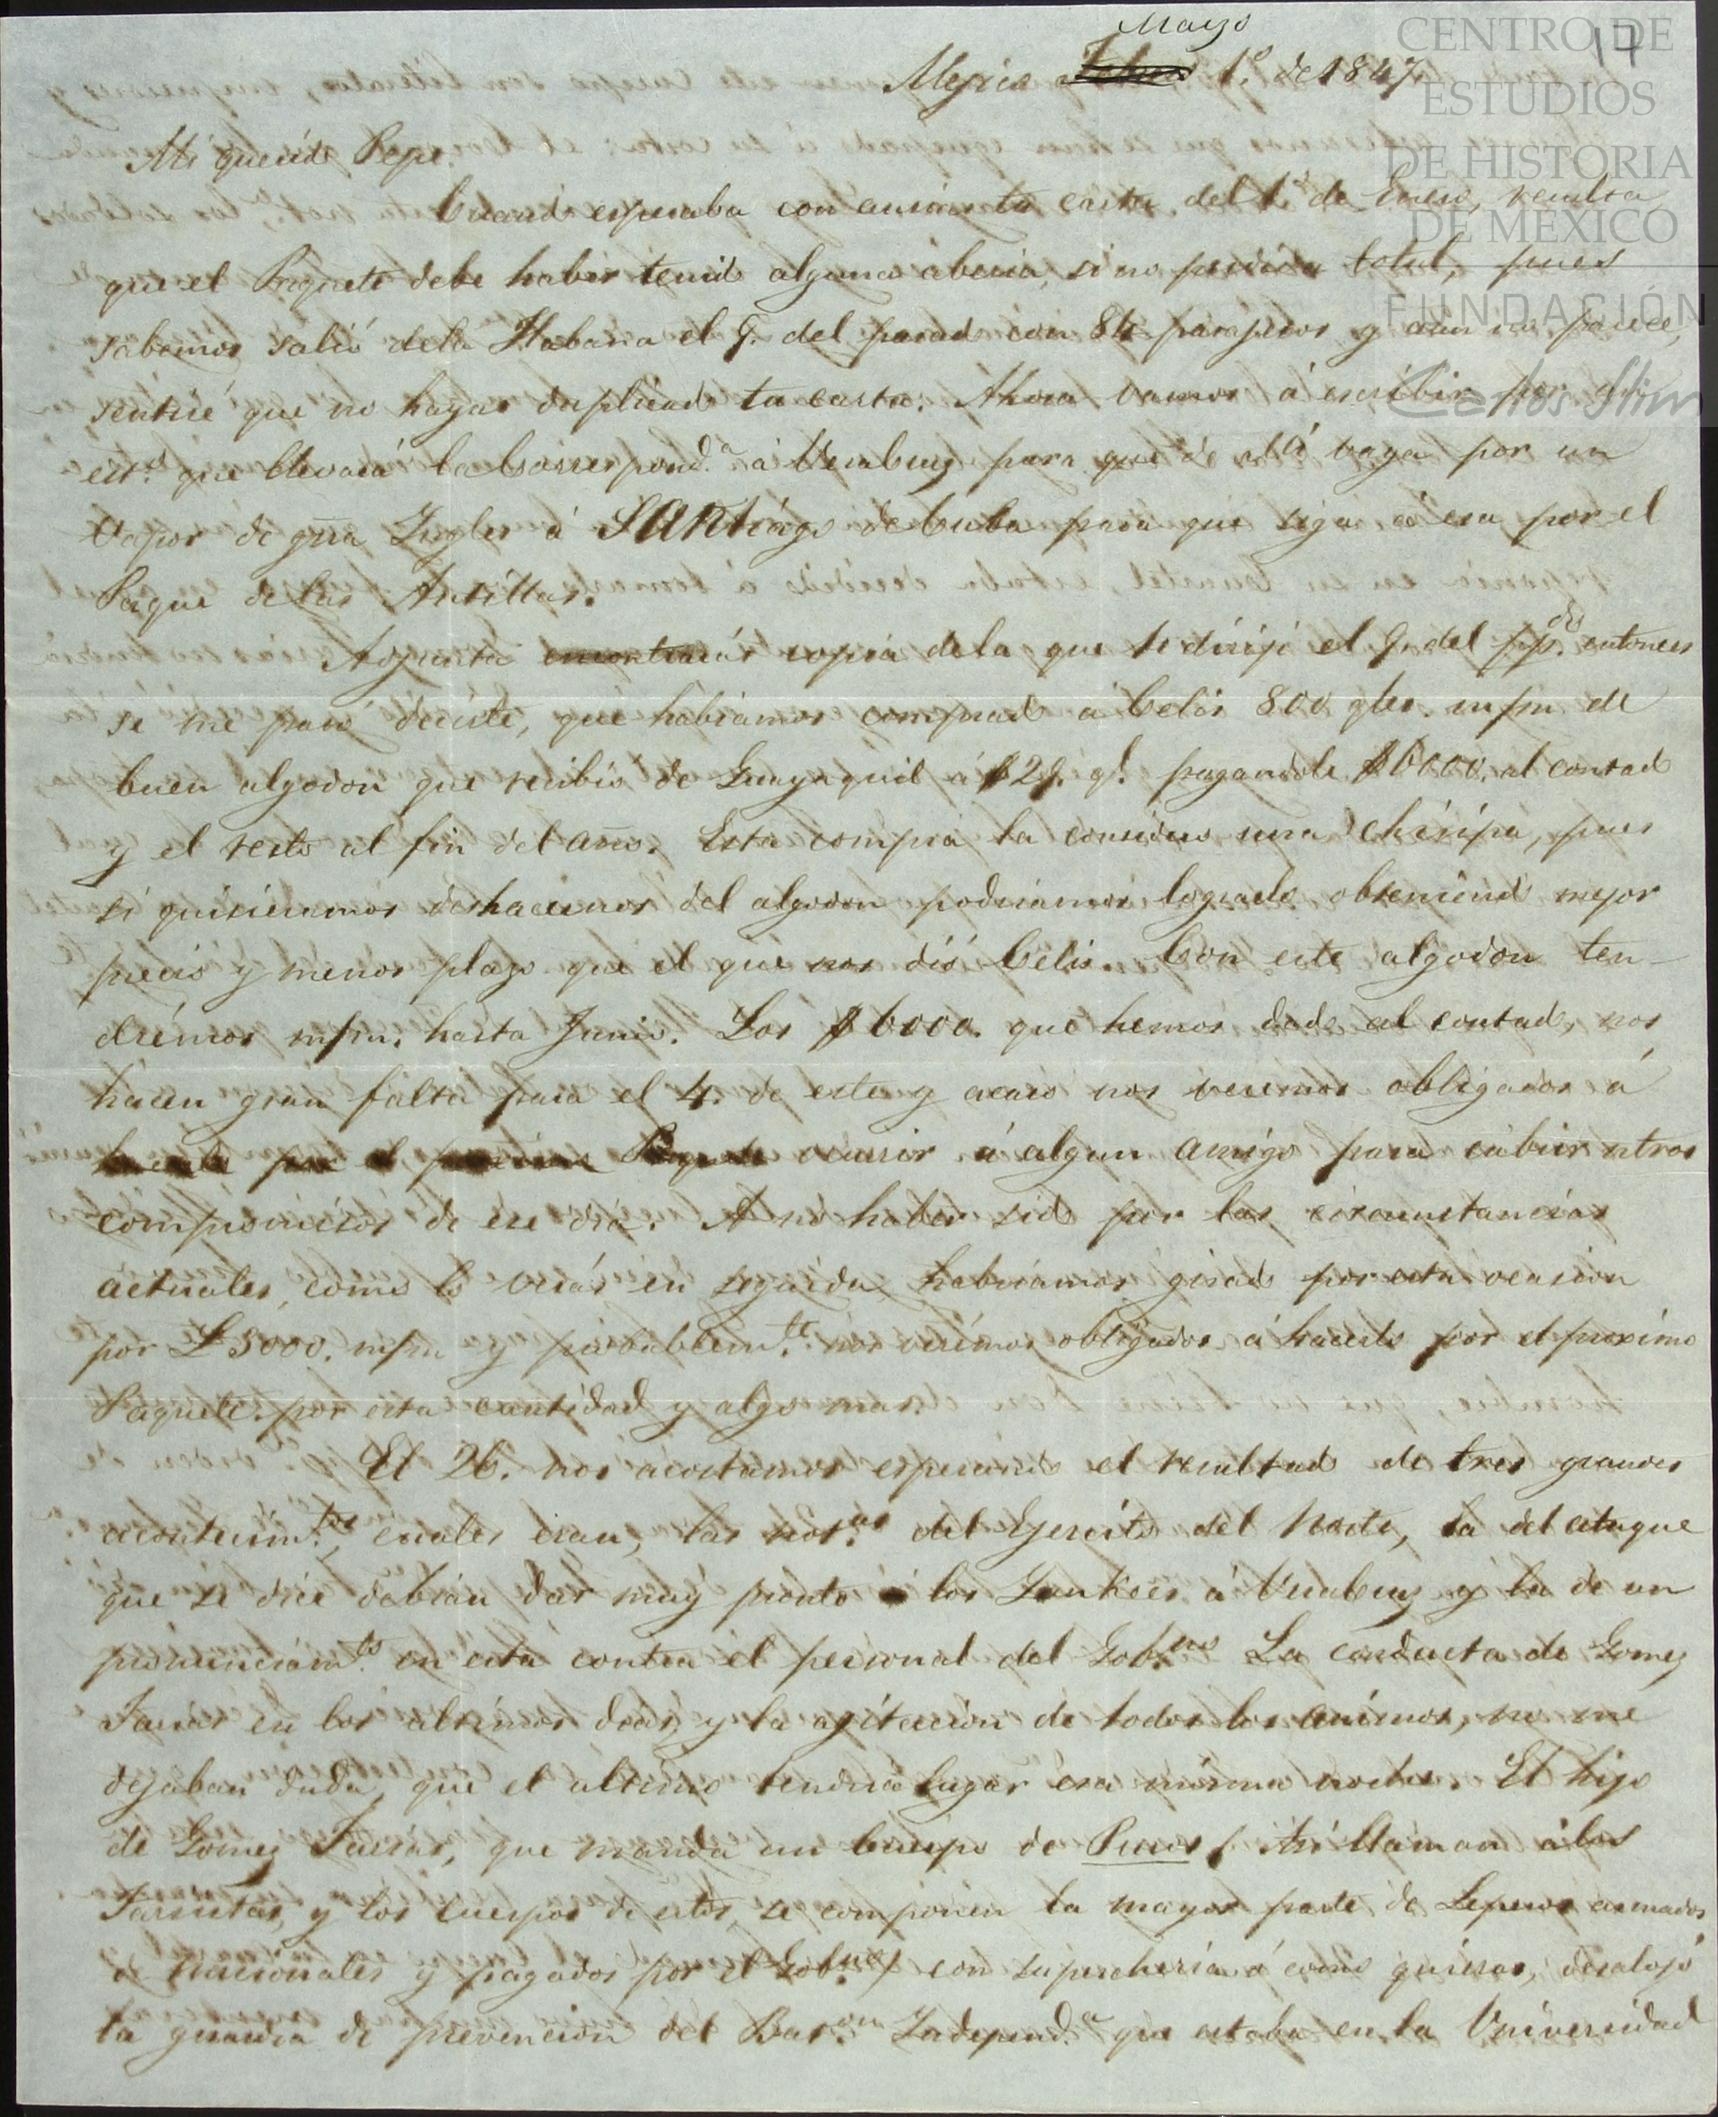 17
CENTRO DE
ESTUDIOS
DE HISTORIA
DE MEXICO
FUNDACIÓN
Carlos Slim
Marzo
Mejico 1.º de 1847.
Mi querido Pepe.
Cuando esperaba con ancia tu carta del 1.º de Enero, resulta
que el Paquete debe haber tenido alguna aberia, si no perdida total, pues
sabemos salió dela Habana el 9. del pasado con 84 pasajeros y aun no parece,
sentiré que no hayas duplicado tu carta. Ahora vamos á escribir por
est.º que llevará la Correspond.a á Veracruz para que de allí vaya por un
Vapor de grra Ingles á Santiago de Cuba para que siga á esa por el
Paque de las Antillas.
Adjunta encontrarás copia dela que te dirijí el 9. del ppdo. entonces
se me pasó decirte, que habiamos comprado á Celis 800 qles. m/m de
buen algodon que recibió de Guayaquil á $29. ql. pagandole $6000. al contado
y el resto al fin del año. Esta compra la considero una chiripa, pues
si quisieramos deshacernos del algodon podriamos lograrlo obteniendo mejor
precio y menor plazo que el que nos dió Celis. Con este algodon ten-
drémos m/m. hasta Junio. Los $6000. que hemos dado al contado, nos
hacen gran falta para el 4. de este y acaso nos veremos obligados á
ocurrir á algun amigo para cubrir ntros
compromisos de ese dia. A no haber sido por las circunstancias
actuales, como lo verás en seguida, habriamos girado por esta ocasion
por £3000. m/m y probablem.te nos verémos obligados á hacerlo por el proximo
Paquete. por esta cantidad y algo mas.
El 26. nos acostamos esperando el resultado de tres grandes
acontecim.tos, cuales eran, las not.as del Ejercito del Norte, la del ataque
que se dice debian dar muy pronto los Yankees á Veracruz y la de un
pronunciam.to en esta contra el personal del Gob.no La conducta de Gomez
Farias en los ultimos dias, y la agitacion de todos los animos, no me
dejaban duda, que el ultimo tendria lugar esa misma noche. El hijo
de Gomez Farias, que manda un Cuerpo de Puros (Así llaman á los
Farristas, y los Cuerpos de estos, se componen la mayor parte de Leperos armados
de nacionales y pagados por el Gob.no) con supercheria ó como quieras, desalojó
la guardia de prevencion del Bat.on Independ.a que estaba en la Universidad